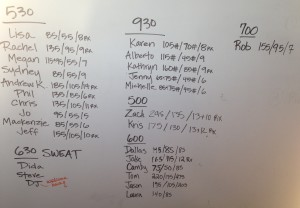 530
Lisa 85/55/8RX
Rachel 135/95/9RX
Megan 115/55/7
Sydney 85/55/9
Andrew K 185/105/13RX
Phil 135/85/6RX
Chris 135/105/11RX
Jo 95/55/5
Mackenzie 85/55/6
Jeff 155/105/10RX
630 SWEAT
Dida
Steve
DJ
930
Karen 105#/70#/8RX
Alberto 115#/45#/9
Kathryn 160#/85#/9RX
Jenny 65#/45#/6
Michelle 85#/45#/6
500
Zack 295/135/13+10 RX
Kris 175/130/13+12 RX
600
Dallas 95/85/85
Jake 165/115/12RX
Camby 75/50/85
Tom
Jason
Laura
700
Rob 155/95/7